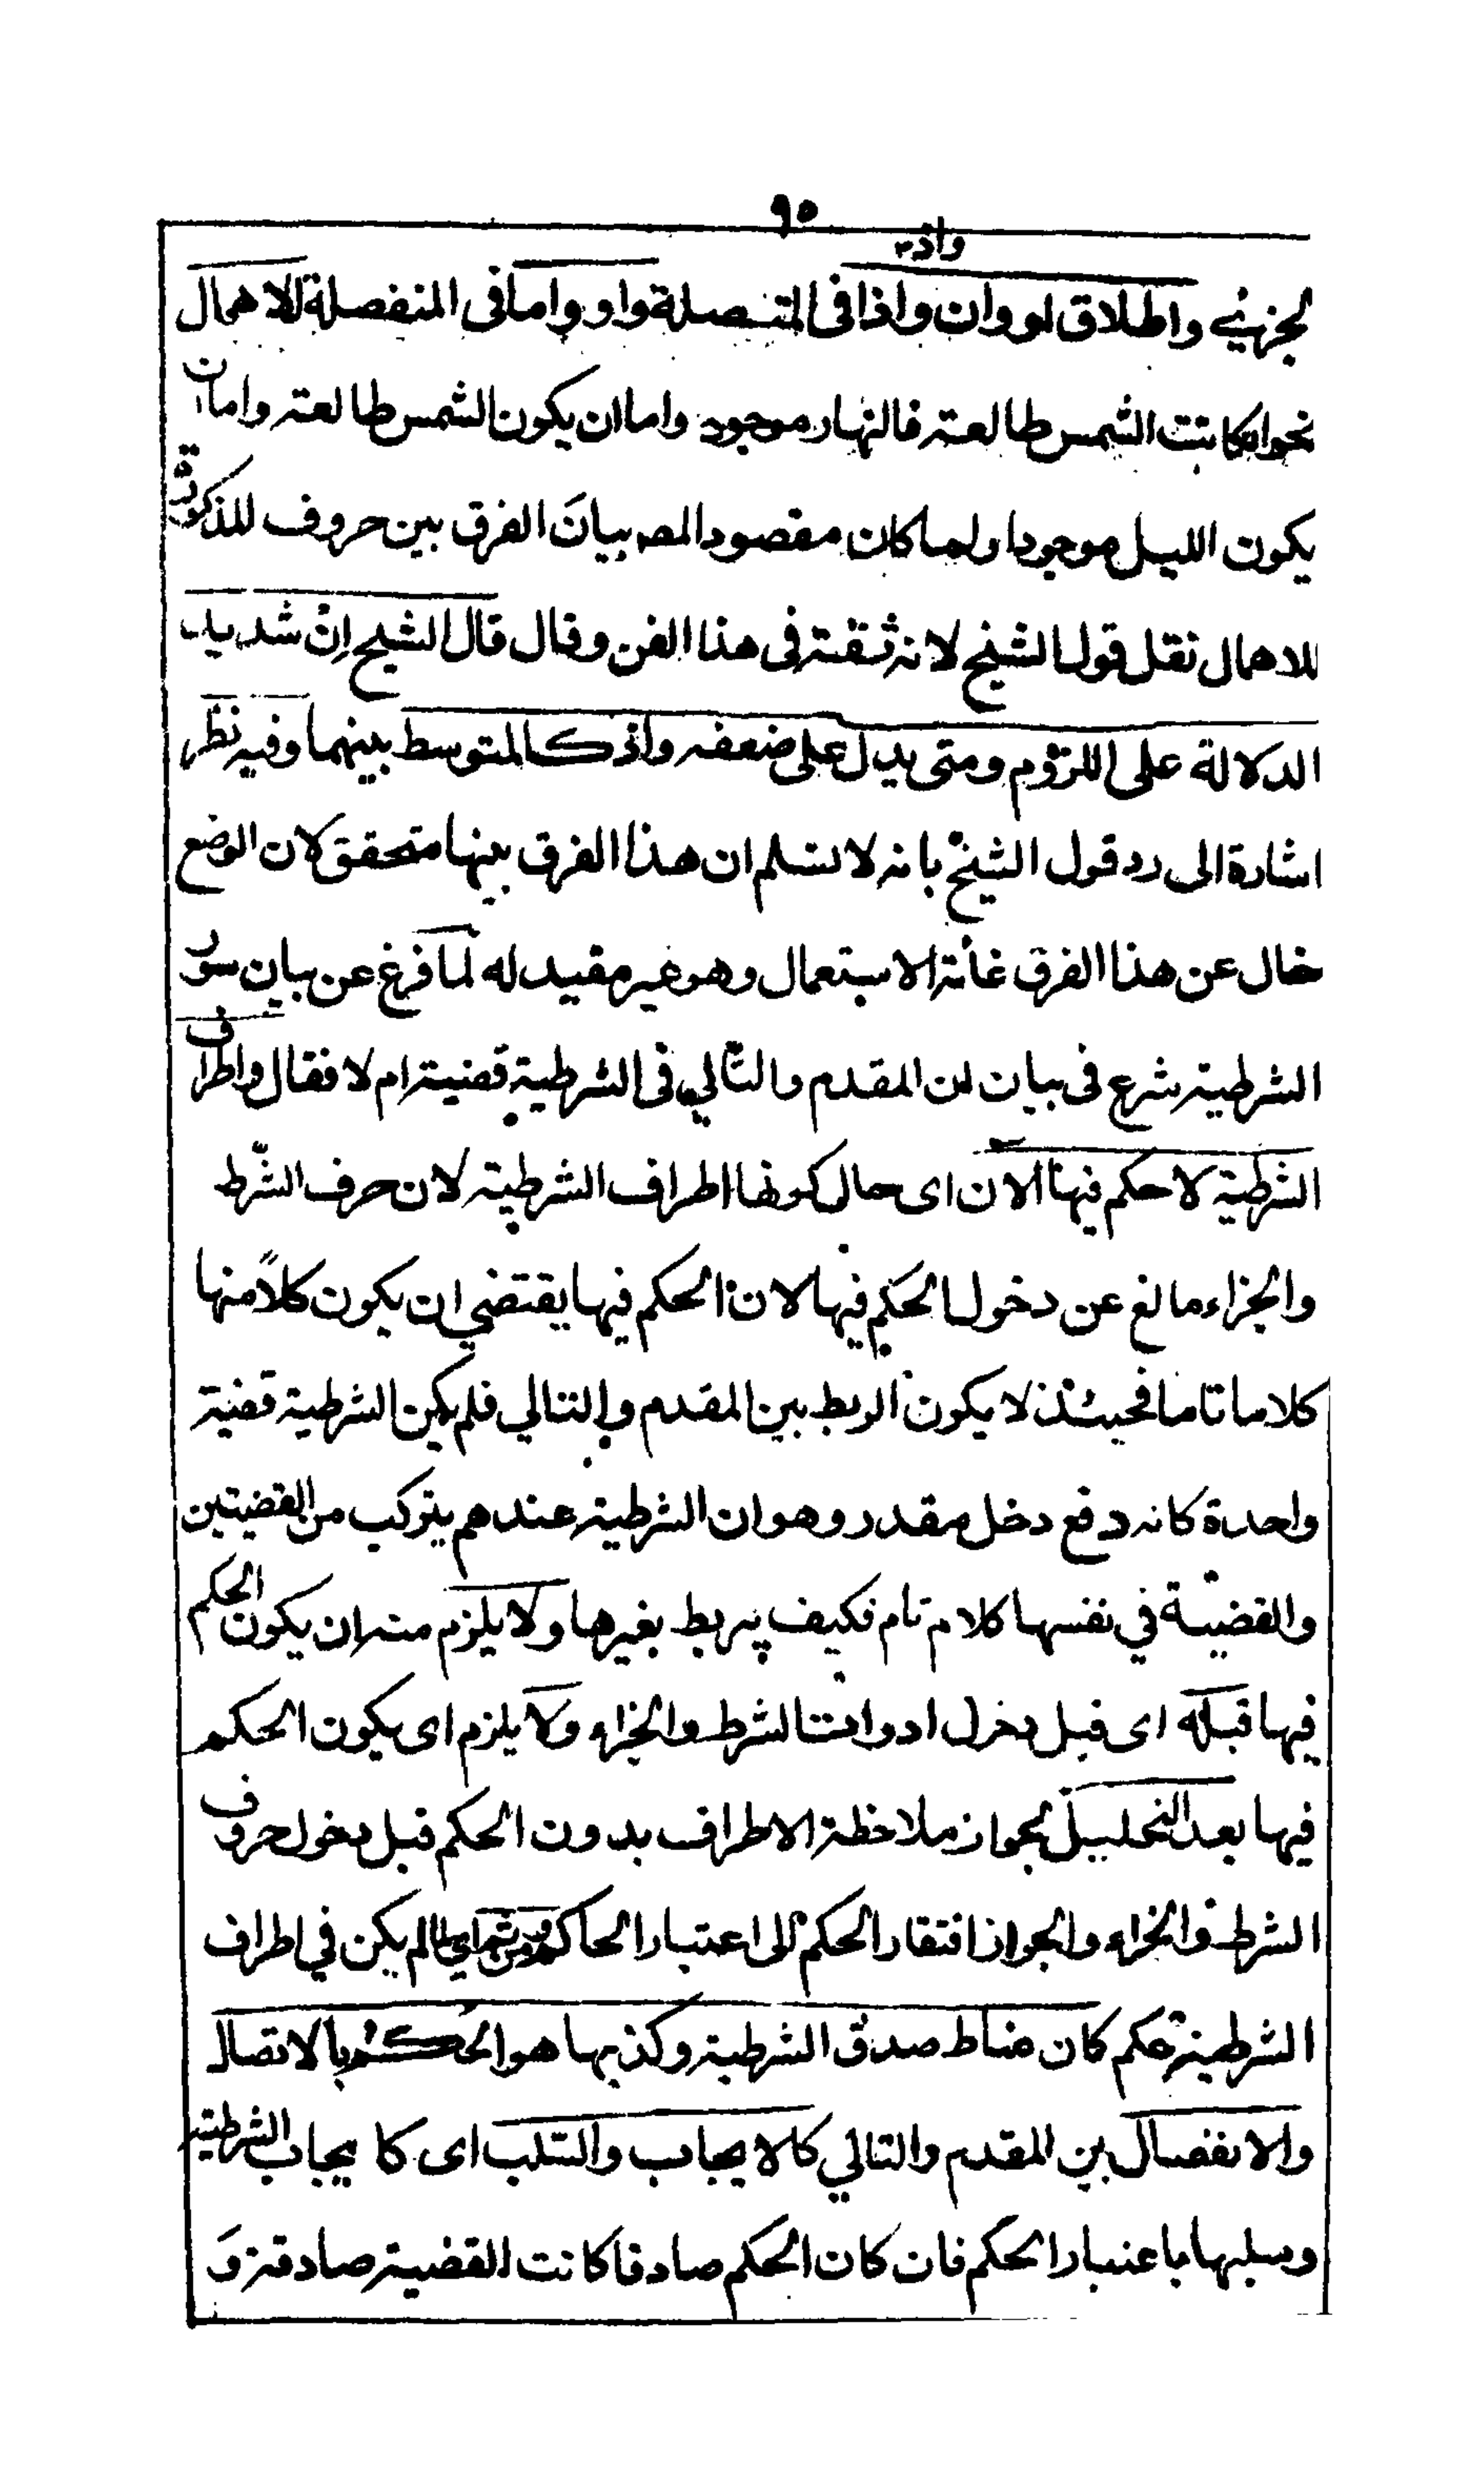 ٩٥
واذ٢
الجزئي واطلاق لو وان واذا فى المتصلة واو واما فى المنفصلة للاهمال
نحو ان كانت الشمس طالعة فالنهار موجود واما ان يكون الشمس طالعة واما ان
يكون الليل موجودا ولما كان مقصود المصه بيانَ الفرق بين حروف المذكورة
للاهمال نقل قول الشيخ لانه ثقة فى هذا الفن وقال قال الشيخ اِنْ شديد
الدلالة على اللزوم ومتى يدل على ضعفه واذ كالمتوسط بينهما وفيه نظر
اشارة الى رد قول الشيخ بانه لا نسلم ان هذا الفرق بينها متحقق لان الوضع
خال عن هذا الفرق غاية الاستعمال وهو غير مفيد له لما فرغ عن بيان سور
الشرطية شرع فى بيان ان المقدم والتّالي فى الشرطية قضية ام لا فقال واطراف
الشرطية لا حكم فيها الان اى حال كونها اطراف الشرطية لان حرف الشّرط
والجزاء مانع عن دخول الحكم فيها لان الحكم فيها يقتضي ان يكون كلاً منها
كلاما تاما فحينئذ لا يكون الربط بين المقدم والتالي فلم يكن الشرطية قضية
واحدة كانه دفع دخل مقدر وهو ان الشرطية عندهم يتركب من القضيتين
والقضية في نفسها كلام تام فكيف يربط بغيرها ولا يلزم منه ان يكون الحكم
فيها قبله اى قبل دخول ادوات الشرط والجزاء ولا يلزم اى يكون الحكم
فيها بعد التحليل لجواز ملاحظة الاطراف بدون الحكم قبل دخول حروف
الشرط والجزاء والجواز افتقار الحكم الى اعتبار الحاكم ومن ثم اى لما لم يكن في اطراف
الشرطية حكم كان مناط صدق الشرطية وكذبها هو الحكم بالاتصال
والانفصال بين المقدم والتالي كالايجاب والسّلب اى كا يجاب الشرطية
وسلبها باعتبار الحكم فان كان الحكم صادقا كانت القضية صادقة وَ